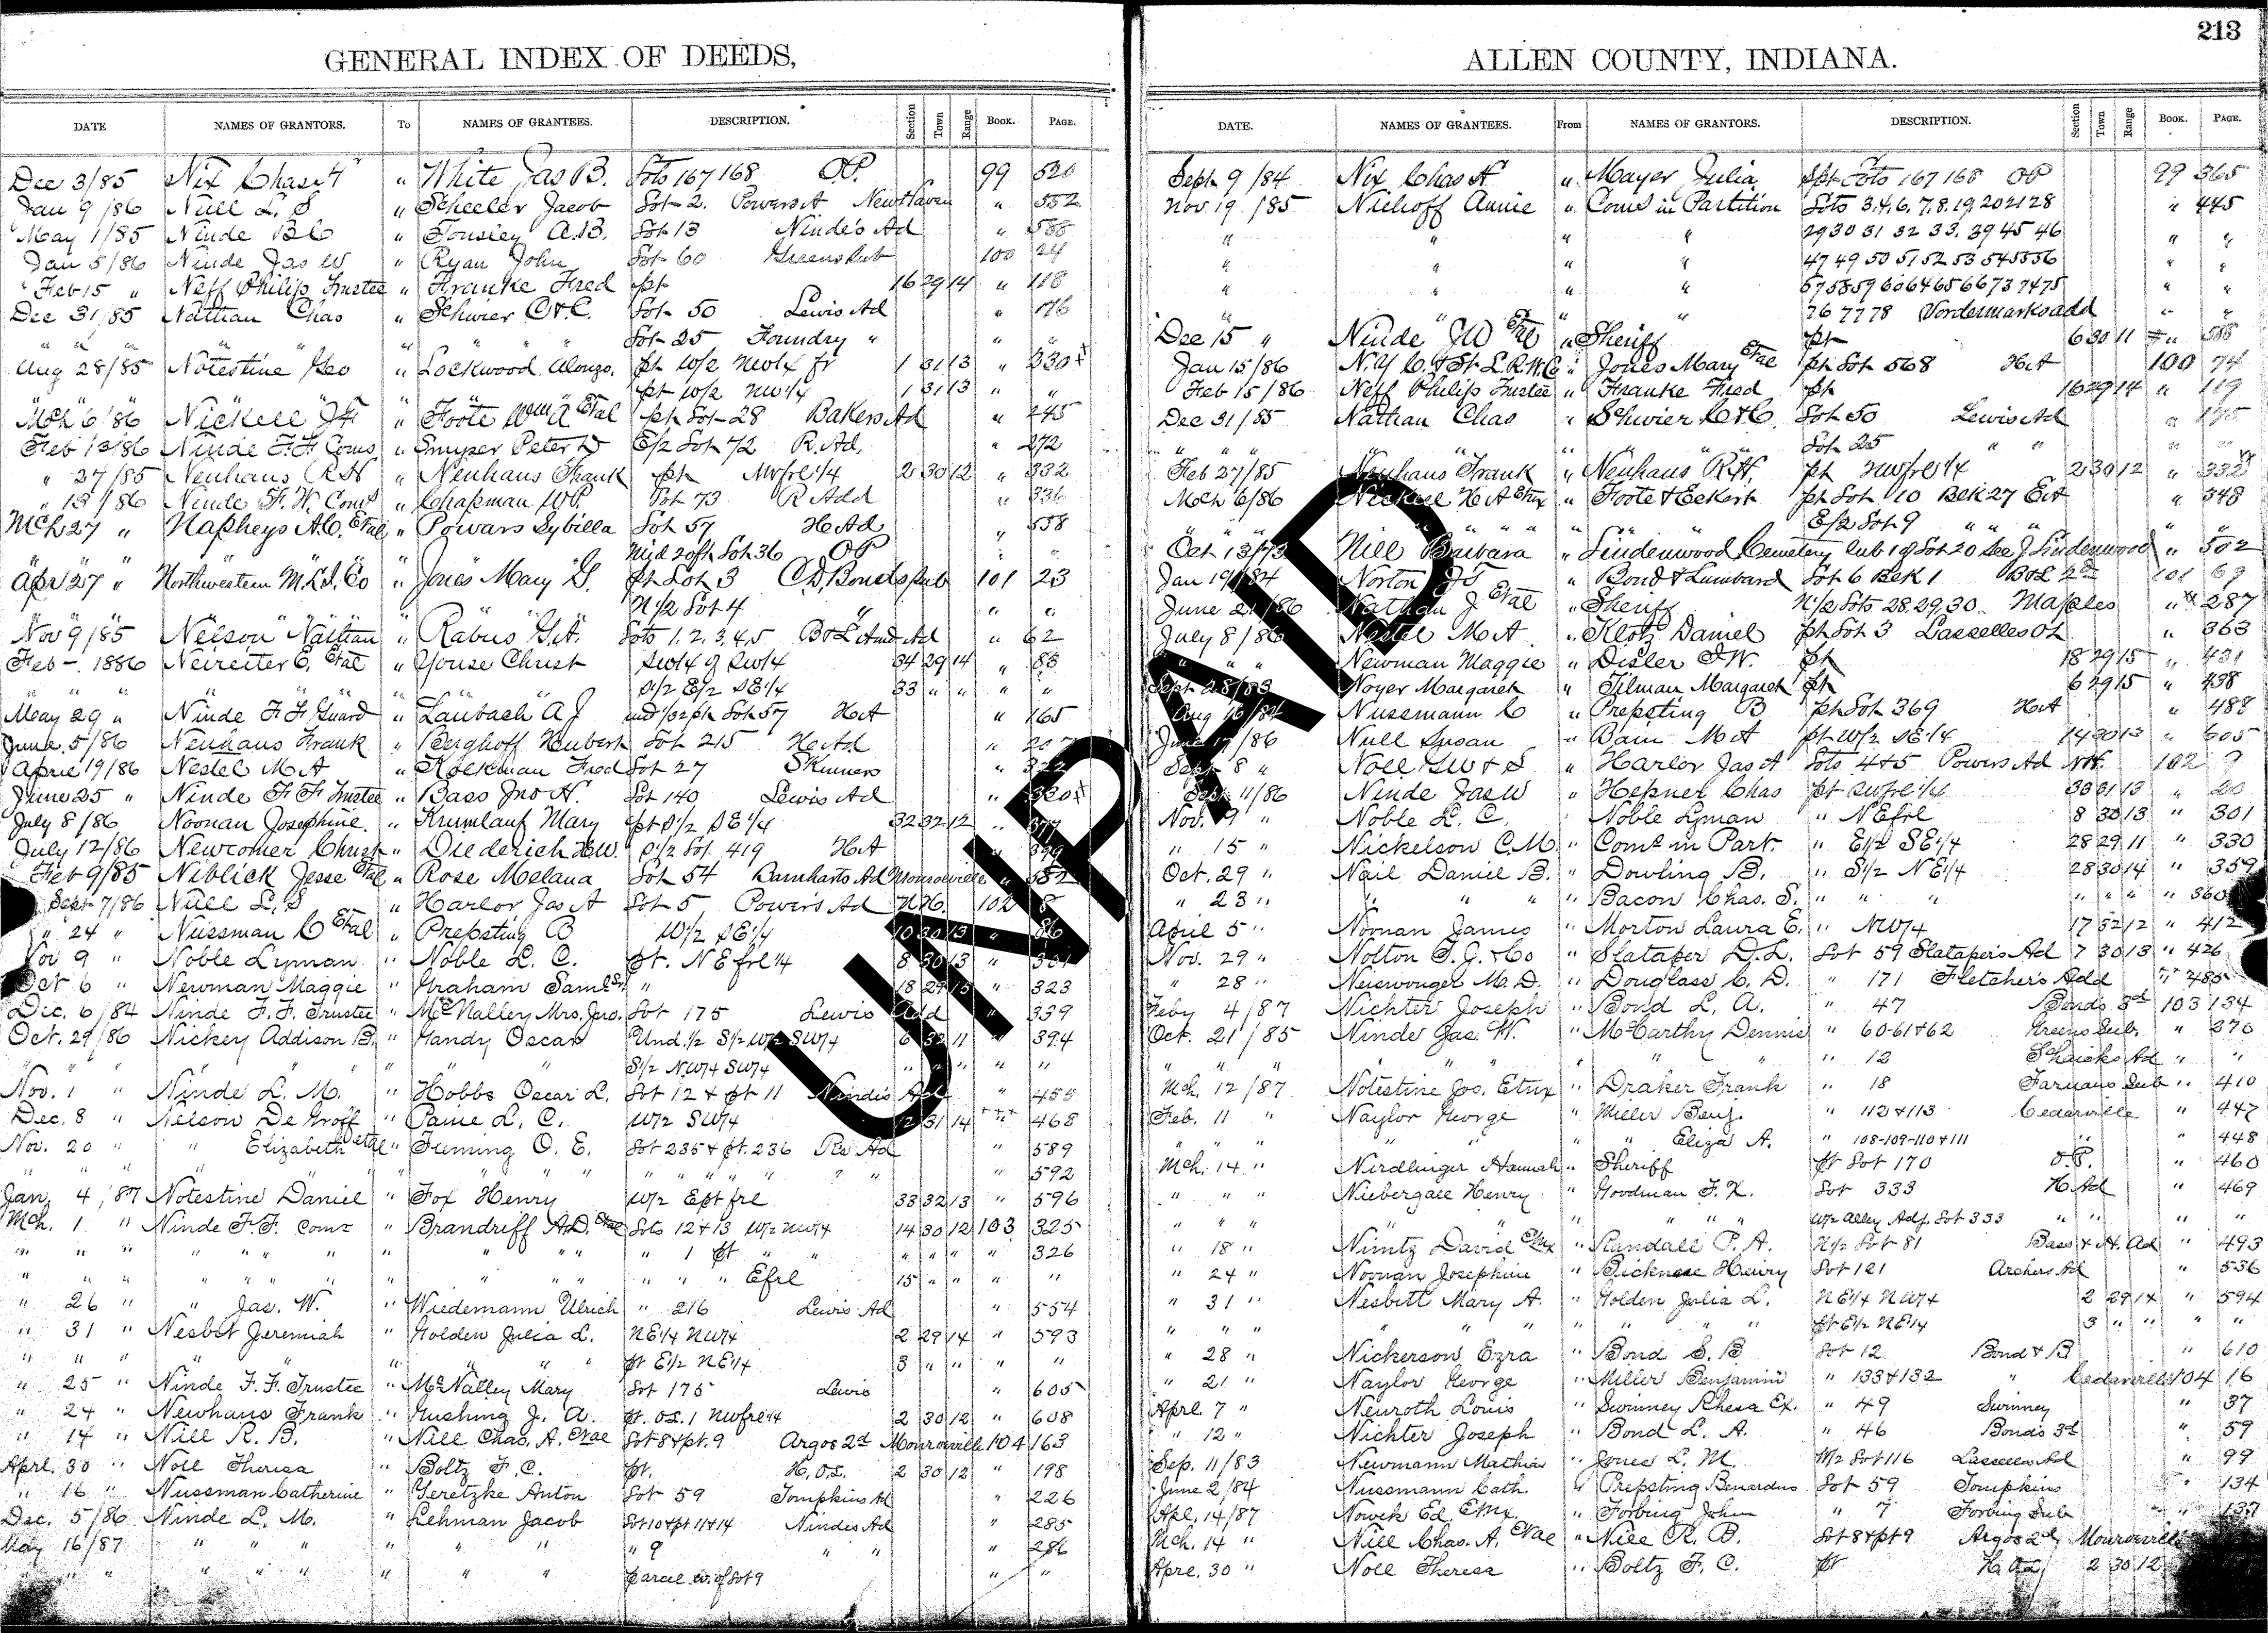 213
GENERAL INDEX OF DEEDS,
DATE NAMES OF GRANTORS. To NAMES OF GRANTEES. DESCRIPTION. Section Town Range Book. PAGE.
Dec 3/85 Nix Chas H " White Jas B. Lots 167 168 O.P. 99 520
Jan 9/86 Null L. S " Scheeler Jacob Lot 2. Powers A New Haven " 552
May 1/85 Ninde B C " Tousley A.B. Lot 13 Ninde's Ad " 588
Jan 5/86 Ninde Jas W " Ryan John Lot 60 Greens Sub 100 24
Feb 15 " Neff Philip Trustee " Franke Fred pt 16 29 14 " 118
Dec 31/85 Nathan Chas " Schwier C & C. Lot 50 Lewis Ad " 176
" " " " " " " Lot 25 Foundry " " "
Aug 28/85 Notestine Geo " Lockwood Alonzo. pt W/2 NW1/4 fr 1 31 13 " 230
" " " " pt W/2 NW1/4 1 31 13 " "
Mch 6/86 Nickell J F " Foote Wm A Etal pt Lot 28 Bakers Ad " 245
Feb 13/86 Ninde F. F. Coms " Smyser Peter D E/2 Lot 72 R. Ad. " 272
" 27/85 Neuhaus R H " Neuhaus Frank pt NW frl 1/4 2 30 12 " 332
" 13/86 Ninde F. W. Coms " Chapman W P. Lot 73 R Add " 336
Mch 27 " Napheys A. C. Etal " Powars Sybilla Lot 57 H Ad " 558
" " " " Mid 20 ft Lot 36 OP " "
Apr 27 " Northwestern M. L. I. Co " Jones Mary G. pt Lot 3 C. D. Bonds Sub 101 23
" " " " N 1/2 Lot 4 " " "
Nov 9/85 Nelson Nathan " Rabus G. A. Lots 1. 2. 3. 4. 5 B & L And Ad " 62
Feb - 1886 Neireiter C. Etal " Youse Christ SW1/4 of SW1/4 34 29 14 " 83
" " " " S/2 E/2 SE1/4 33 " " " "
May 29 " Ninde F F Guard " Laubach A J und 1/02 pt Lot 57 H A " 165
June 5/86 Neuhaus Frank " Berghoff Hubert Lot 215 H Ad "
April 19/86 Nestel M A " Koekman Fred Lot 27 Skinners "
June 25 " Ninde F F Trustee " Bass Jno H. Lot 140 Lewis Ad " 320
July 8/86 Noonan Josephine. " Krumlauf Mary pt S/2 SE1/4 32 32 12 " 377
July 12/86 Newcomer Christ " Diederich H W. S/2 Lot 419 H A " 399
Feb 9/85 Niblick Jesse Etal " Rose Melana Lot 54 Barnharts Ad Monroeville " 582
Sept 7/86 Null L. S " Harlor Jas A Lot 5 Powers Ad N. H. 102 8
" 24 " Nussman C Etal " Prepsting B W/2 SE1/4 10 30 13 " 86
Nov 9 " Noble Lyman " Noble L. C. pt. NE frl 1/4 8 30 13 " 301
Oct 6 " Newman Maggie " Graham Saml S. " 18 29 15 " 323
Dec. 6/84 Ninde F. F. Trustee " McNalley Mrs. Jas. Lot 175 Lewis Add " 339
Oct. 29/86 Nickey Addison B. " Handy Oscar Und. 1/2 S1/2 W/2 SW1/4 6 32 11 " 394
" " " " S1/2 NW1/4 SW1/4 " " " " "
Nov. 1 " Ninde L. M. " Hobbs Oscar L. Lot 12 & pt 11 Nindes Ad " 455
Dec. 8 " Nelson De Groff " Paine L. C. W/2 SW1/4 12 31 14 " 468
Nov. 20 " " Elizabeth Etal " Fleming O. E. Lot 235 & pt. 236 Rs Ad " 589
" " " " " " " " 592
Jan. 4/87 Notestine Daniel " Fox Henry W/2 Ept frl 33 32 13 " 596
Mch. 1 " Ninde F. F. Comr " Brandriff A. D. Etal Lots 12 & 13 W/2 NW1/4 14 30 12 103 325
" " " " " " 1 pt " " " " " " 326
" " " " " " " " E frl 15 " " " "
" 26 " " Jas. W. " Wiedemann Ulrich " 216 Lewis Ad " 554
" 31 " Nesbit Jeremiah " Golden Julia L. NE1/4 NW1/4 2 29 14 " 593
" " " " " " pt E1/2 NE1/4 3 " " " "
" 25 " Ninde F. F. Trustee " McNalley Mary Lot 175 Lewis " 605
" 24 " Newhaus Frank " Rushing J. A. pt. O.L. 1 NW frl 1/4 2 30 12 " 608
" 14 " Nill R. B. " Nill Chas. A. Etal Lot 8 & pt. 9 Argos 2d Monroeville 104 163
Aprl. 30 " Noll Theresa " Boltz F. C. pt. H. O.L. 2 30 12 " 198
" 16 " Nussman Catherine " Geretzke Anton Lot 59 Tompkins Ad " 226
Dec. 5/86 Ninde L. M. " Lehman Jacob Lot 10 & pt 11 & 14 Nindes Ad " 285
May 16/87 " " " " " " 9 " " " 286
" " " " " " Parcel W. of Lot 9 " "
ALLEN COUNTY, INDIANA.
DATE. NAMES OF GRANTEES. From NAMES OF GRANTORS. DESCRIPTION. Section Town Range Book. PAGE.
Sept 9/84 Nix Chas H " Mayer Julia pt Lots 167 168 OP 99 365
Nov 19/85 Niehoff Annie " Coms in Partition Lots 3. 4. 6. 7. 8. 19. 20 21 28 " 445
" " " " 29 30 31 32 33. 39 45 46 " "
" " " " 47 49 50 51 52 53 54 55 56 " "
" " " " 57 58 59 60 64 65 66 73 74 75 " "
" " " " 76 77 78 Vordermarks add " "
Dec 15 " Ninde J W Etal " Sheriff pt 6 30 11 " 588
Jan 15/86 N. Y. C. & St. L. R. W. Co " Jones Mary Etal pt Lot 568 H A 100 74
Feb 15/86 Neff Philip Trustee " Franke Fred pt 16 29 14 " 119
Dec 31/85 Nathan Chas " Schwier C & C. Lot 50 Lewis Ad " 175
" " " " " Lot 25 " " " "
Feb 27/85 Neuhaus Frank " Neuhaus R. H. pt NW frl 1/4 2 30 12 " 332
Mch 6/86 Nickell H A Etux " Foote & Eckert pt Lot 10 Blk 27 E A " 348
" " " " " E/2 Lot 9 " " " " "
Oct 13/73 Nill Barbara " Lindenwood Cemetery Sub 1 of Lot 20 Sec J. Lindenwood " 502
Jan 19/84 Norton J S " Bond & Lumbard Lot 6 Blk 1 B & L 2d 101 69
June 21/86 Nathan J Etal " Sheriff N 1/2 Lots 28. 29. 30. Maples " 287
July 8/86 Nestel M A " Klotz Daniel pt Lot 3 Lasselles O L " 363
" " " Newman Maggie " Disler J W. pt 18 29 15 " 431
Sept 28/83 Noyer Margaret " Tilman Margaret pt 6 29 15 " 438
Aug 16/84 Nussmann C " Prepsting B pt Lot 369 H A " 488
June 17/86 Null Susan " Bain M A pt W/2 SE1/4 14 30 13 " 605
Sept 8 " Noll G W & S " Harlor Jas A Lots 4 & 5 Powers Ad N H. 102 9
Sept 11/86 Ninde Jas W " Hepner Chas pt SW frl 1/4 33 31 13 " 20
Nov. 9 " Noble L. C. Noble Lyman " NE frl 8 30 13 " 301
" 15 " Nickelson C. M. " Comr in Part. " E1/2 SE1/4 28 29 11 " 330
Oct. 29 " Nail Daniel B. " Dowling B. " S1/2 NE1/4 28 30 14 " 359
" 23 " " " " Bacon Chas. S. " " " " " " " 360
April 5 " Noonan James " Morton Laura E. " NW1/4 17 32 12 " 412
Nov. 29 " Nolton S. G. & Co " Slataper D. L. Lot 59 Slataper's Ad 7 30 13 " 426
" 28 " Neiswonger M. D. " Douglass C. D. " 171 Fletcher's Add " 485
Feby 4/87 Nichter Joseph " Bond L. A. " 47 Bonds 3d 103 134
Oct. 21/85 Ninde Jas. W. " McCarthy Dennis " 60-61 & 62 Greens Sub. " 276
" " " " " 12 Shricks Ad " "
Mch. 12/87 Notestine Jos. Etux " Draker Frank " 18 Farnans Sub " 410
Feb. 11 " Naylor George " Miller Benj. " 112 & 113 Cedarville " 447
" " " " " " Eliza A. " 108-109-110 & 111 " " 448
Mch. 14 " Nirdlinger Hannah " Sheriff pt Lot 170 O.P. " 460
" " " Niebergall Henry " Goodman F. X. Lot 333 H. Ad " 469
" " " " " " W/2 Alley Adj. Lot 333 " " "
" 18 " Nimtz David Etux " Randall P. A. N/2 Lot 81 Bass & H. Ad " 493
" 24 " Noonan Josephine " Bicknase Henry Lot 121 Archers Ad " 536
" 31 " Nesbitt Mary A. " Golden Julia L. NE1/4 NW1/4 2 29 14 " 594
" " " " " " pt E1/2 NE1/4 3 " " " "
" 28 " Nickerson Ezra " Bond S. B Lot 12 Bond & B " 610
" 21 " Naylor George " Miller Benjamin " 133 & 132 " Cedarville 104 16
Aprl. 7 " Neuroth Louis " Swinney Rhesa Ex. " 49 Swinney " 37
" 12 " Nichter Joseph " Bond L. A. " 46 Bonds 3d " 59
Sep. 11/83 Newmann Mathias " Jones L. M. W/2 Lot 116 Lasselles Ad " 99
June 2/84 Nussmann Cath. " Prepsting Benardus Lot 59 Tompkins " 134
Apl. 14/87 Nowik Ed Etux " Forbing John " 7 Forbing Sub " 137
Mch. 14 " Nill Chas. A. Etal " Nill R. B. Lot 8 & pt 9 Argos 2d Monroeville
Aprl. 30 " Noll Theresa " Boltz F. C. pt 2 30 12
UNPAID